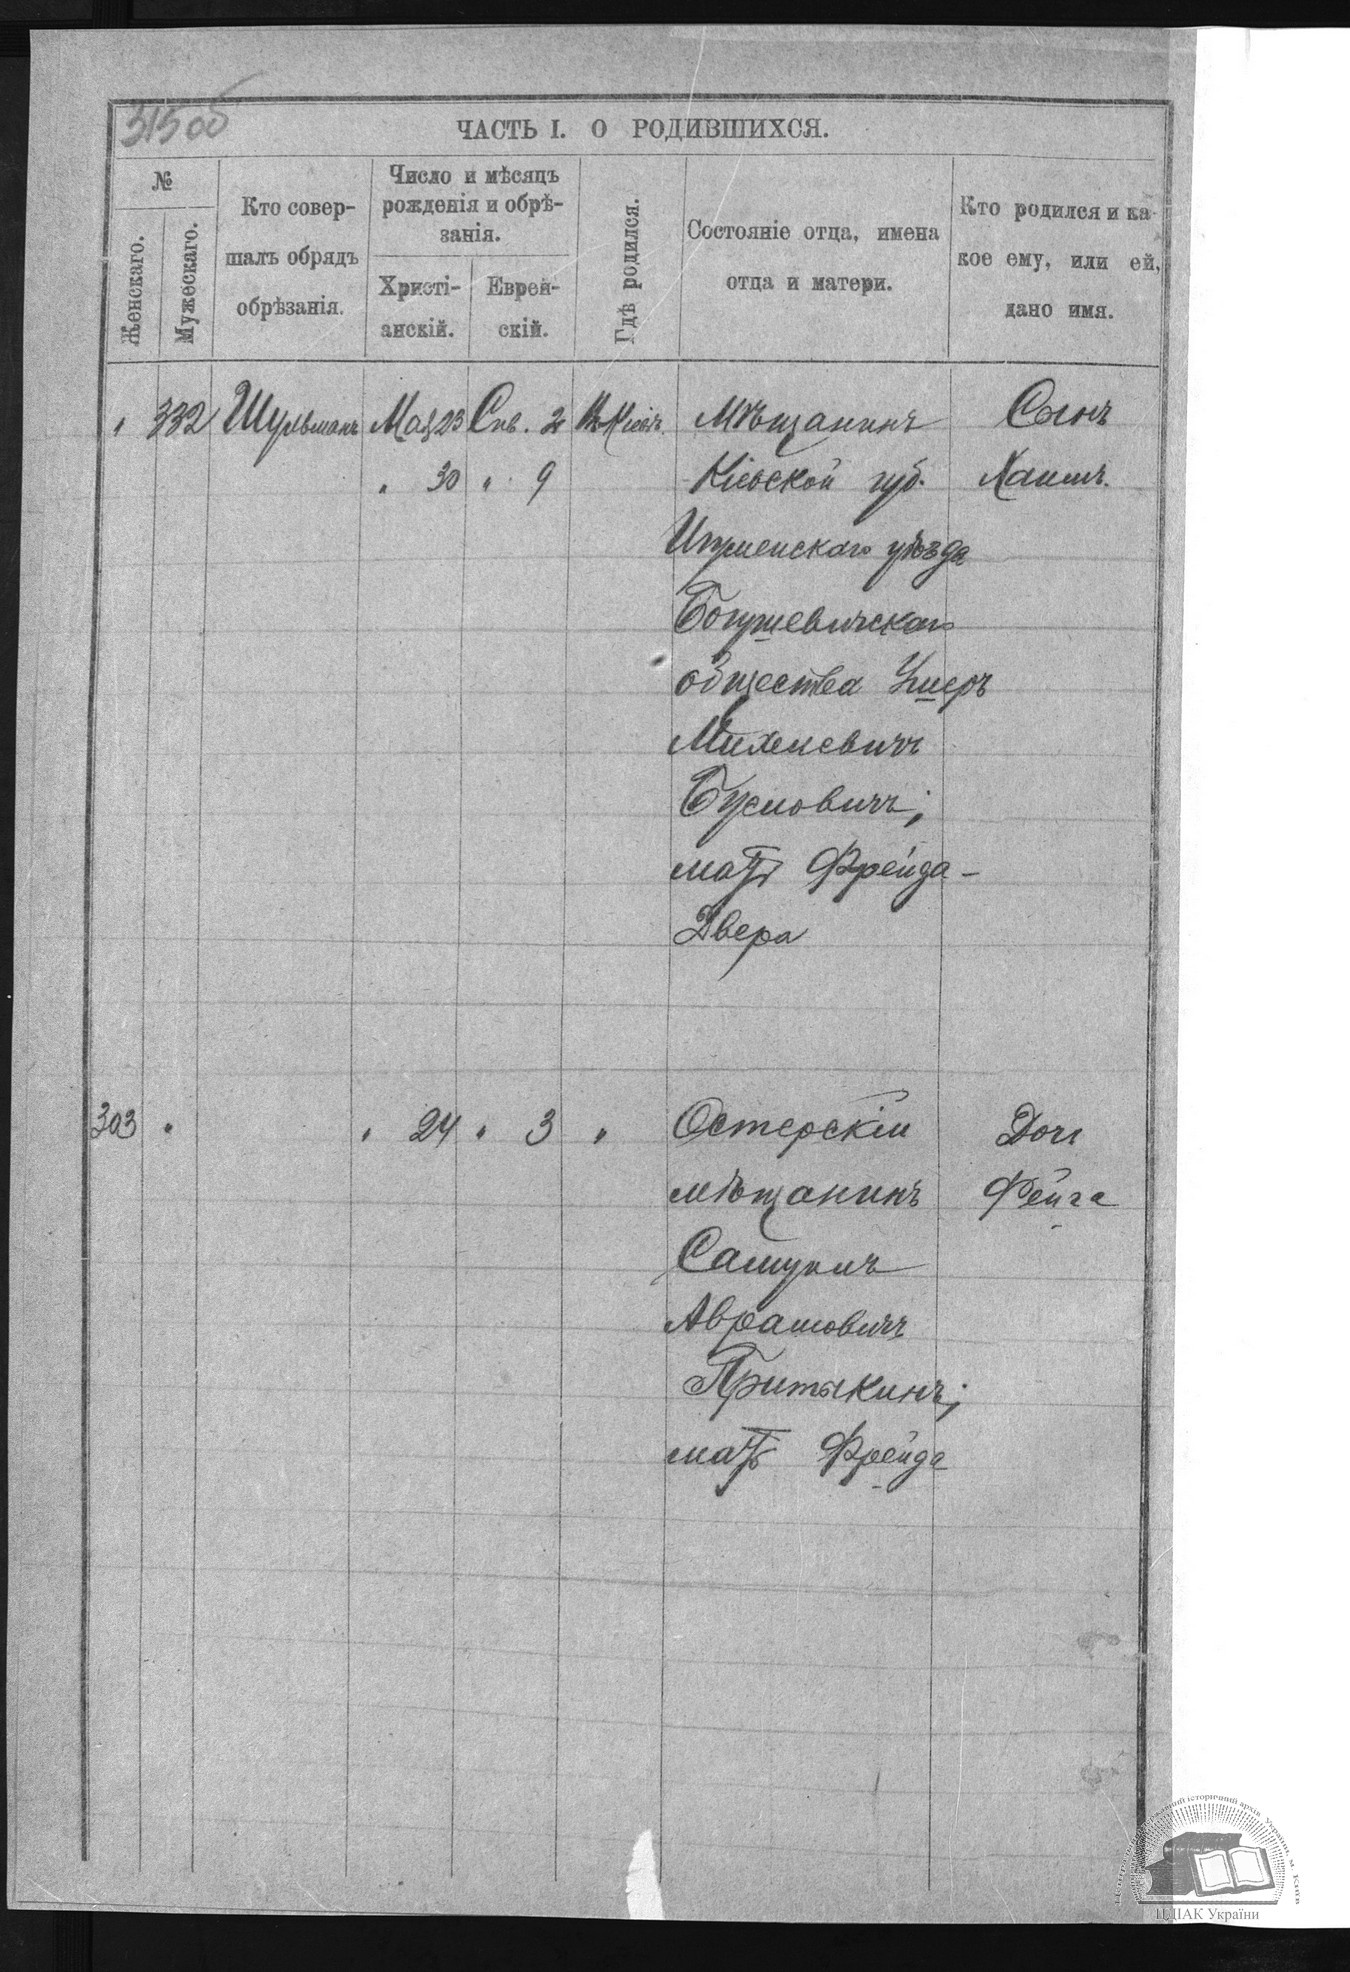 315 об
ЧАСТЬ I. О РОДИВШИХСЯ.
№
Женскаго.
Мужескаго.
Кто совер-
шалъ обрядъ
обрѣзанія.
Число и мѣсяцъ
рожденія и обрѣ-
занія.
Христі-
анскій.
Еврей-
скій.
Гдѣ родился.
Состояніе отца, имена
отца и матери.
Кто родился и ка-
кое ему, или ей,
дано имя.
" 332 Шульманъ Мая 23 Сив. 2 Въ Кіевѣ. Мѣщанинъ Сынъ
" 30 " 9 Кіевской губ. Хаимъ.
Игуменскаго уѣзда
Богушевичскаго
общества Ушеръ
Михелевичъ
Буслович;
мать Фрейда-
Двера
303 " " 24 " 3 " Остерскій Дочь
мѣщанинъ Фейга
Самуилъ
Аврамовичъ
Притыкинъ;
мать Фрейда
ЦДІАК України